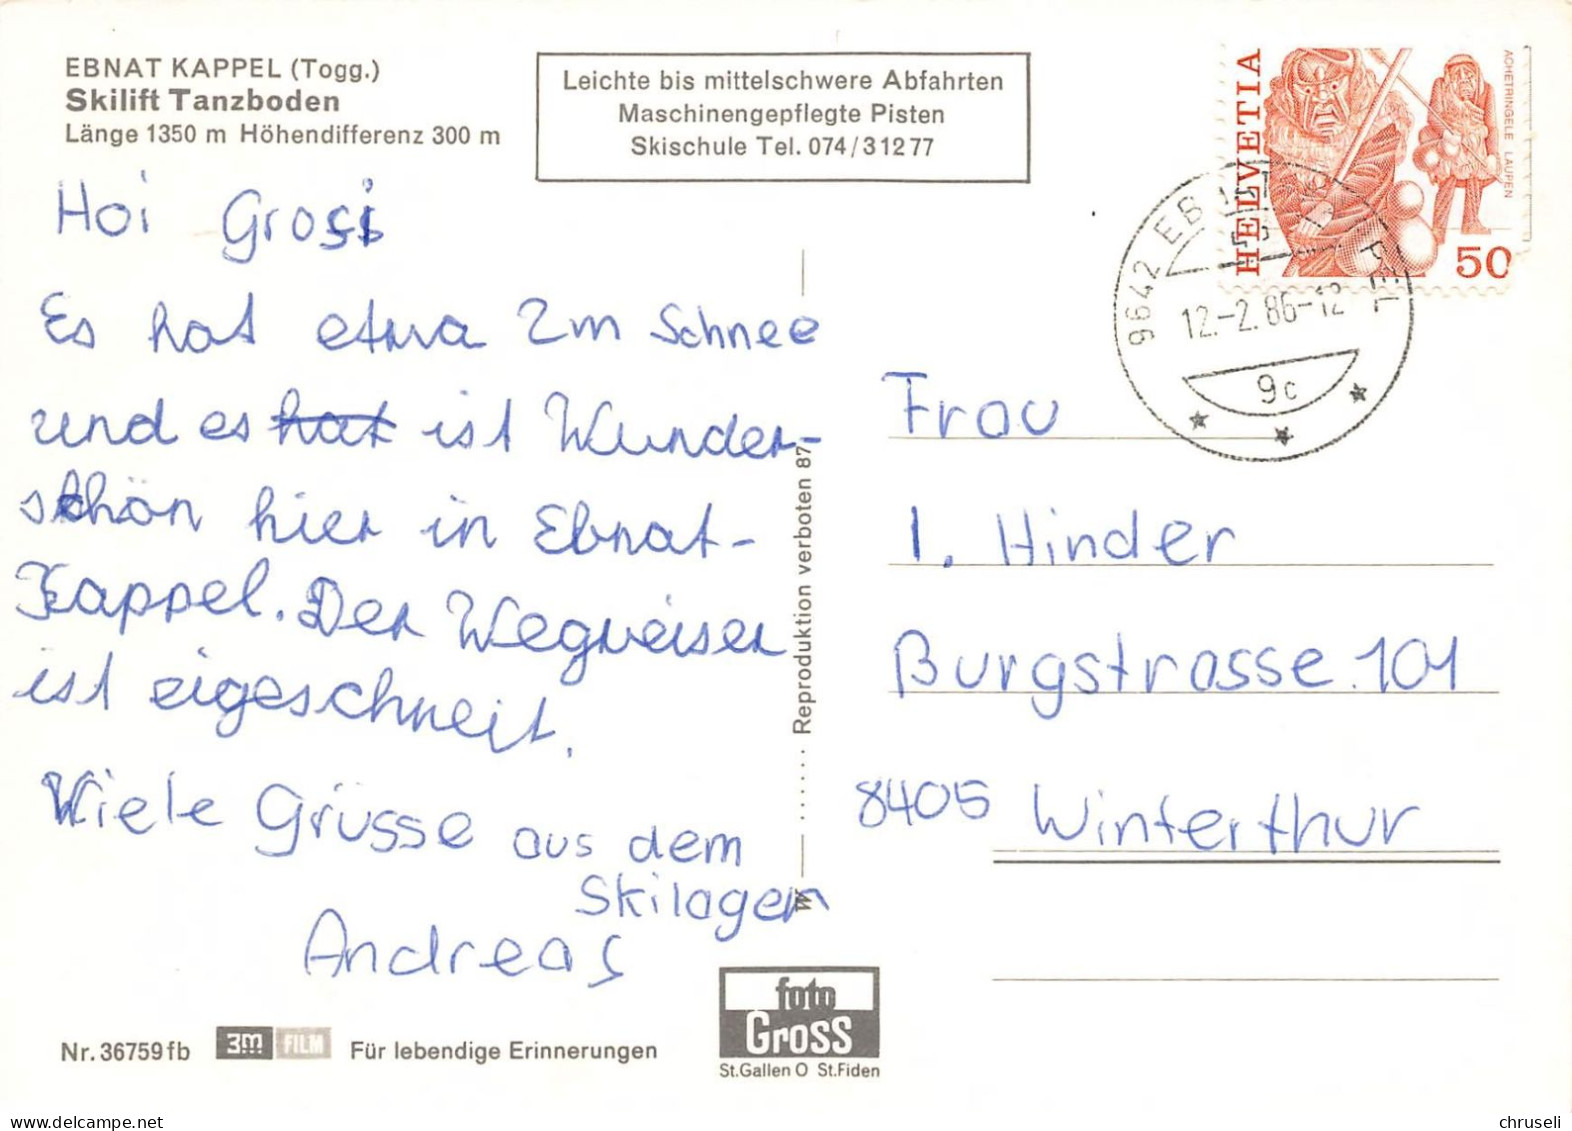 EBNAT KAPPEL (Togg.)
Skilift Tanzboden
Länge 1350 m Höhendifferenz 300 m
Leichte bis mittelschwere Abfahrten
Maschinengepflegte Pisten
Skischule Tel. 074/31277
HELVETIA
ACHETRINGELE LAUPEN
50
9642 EBNAT KAPPEL
12.-2.86-12
9c
Hoi Grosi
Es hat etwa 2m Schnee
und es hat ist Wunder-
schön hier in Ebnat-
Kappel. Der Wegweiser
ist eigeschneit.
Viele Grüsse aus dem
Skilager
Andreas
W ...... Reproduktion verboten 87
Frau
I. Hinder
Burgstrasse 101
8405 Winterthur
Nr. 36759 fb
3m FILM
Für lebendige Erinnerungen
foto
Gross
St.Gallen O St.Fiden
chruseli